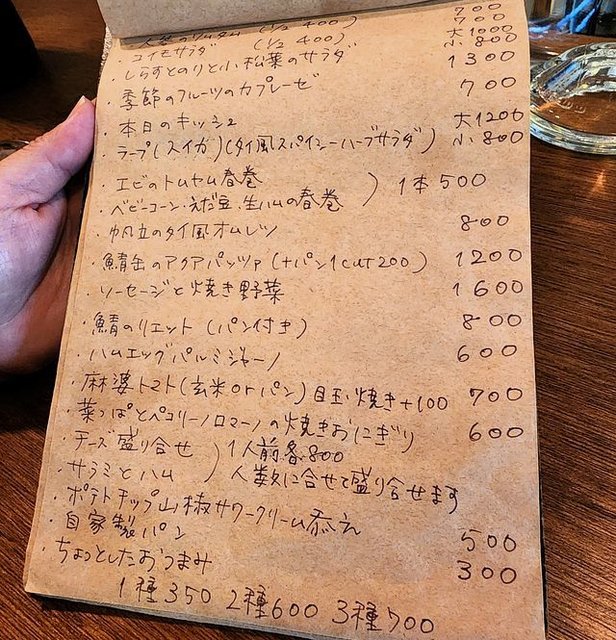 (1/2 400) 700
・コイモサラダ (1/2 400) 700
・しらすとのりと小松菜のサラダ 大1000 小800
・季節のフルーツのカプレーゼ 1300
・本日のキッシュ 700
・ラープ(スイカ)(タイ風スパイシーハーブサラダ) 大1200 小800
・エビのトムヤム春巻
・ベビーコーン・えだ豆、生ハムの春巻 ) 1本500
・帆立のタイ風オムレツ 800
・鯖缶のアクアパッツァ(+パン1cut200) 1200
・ソーセージと焼き野菜 1600
・鯖のリエット (パン付き) 800
・ハムエッグパルミジャーノ 600
・麻婆トマト(玄米orパン)目玉焼き+100 700
・菜っぱとペコリーノロマーノの焼きおにぎり 600
・チーズ盛り合せ ) 1人前各800
・サラミとハム 人数に合せて盛り合せます
・ポテトチップ山椒サワークリーム添え 500
・自家製パン 300
・ちょっとしたおつまみ
1種350 2種600 3種700